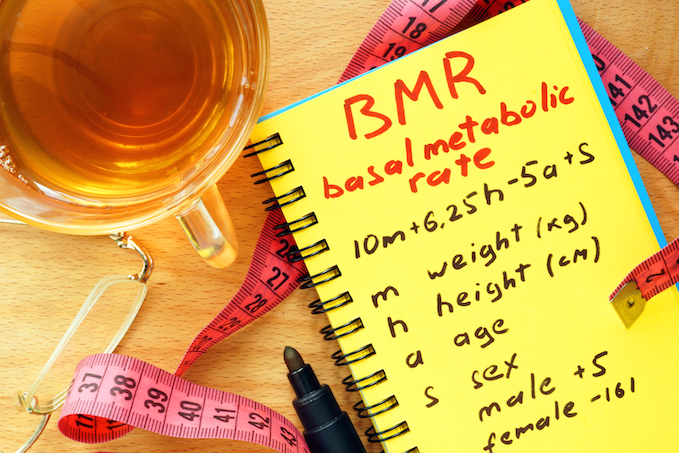 BMR
basal metabolic
rate
10m+6,25h-5a+s
m weight (kg)
h height (cm)
a age
s sex
male +5
female -161
18
17
141
142
143
27
37
38
39
40
41
42
2